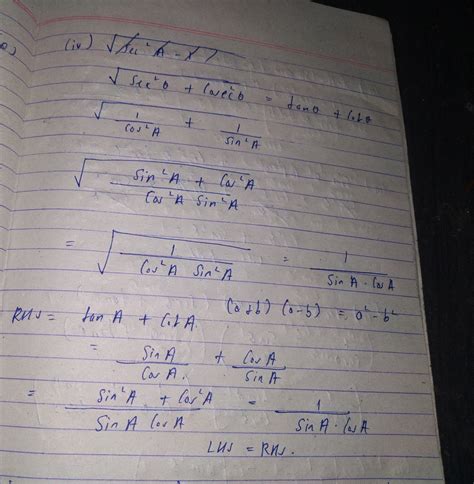 (iv) √sec²A - 1
√sec²θ + cosec²θ = tanθ + cotθ
√1/cos²A + 1/sin²A
√sin²A + cos²A / cos²A sin²A
= √1/cos²A sin²A = 1/sin A · cos A
RHS = tan A + cot A (a+b) (a-b) = a² - b²
= sin A/cos A + cos A/sin A
= sin²A + cos²A / sin A cos A = 1/sin A · cos A
LHS = RHS.